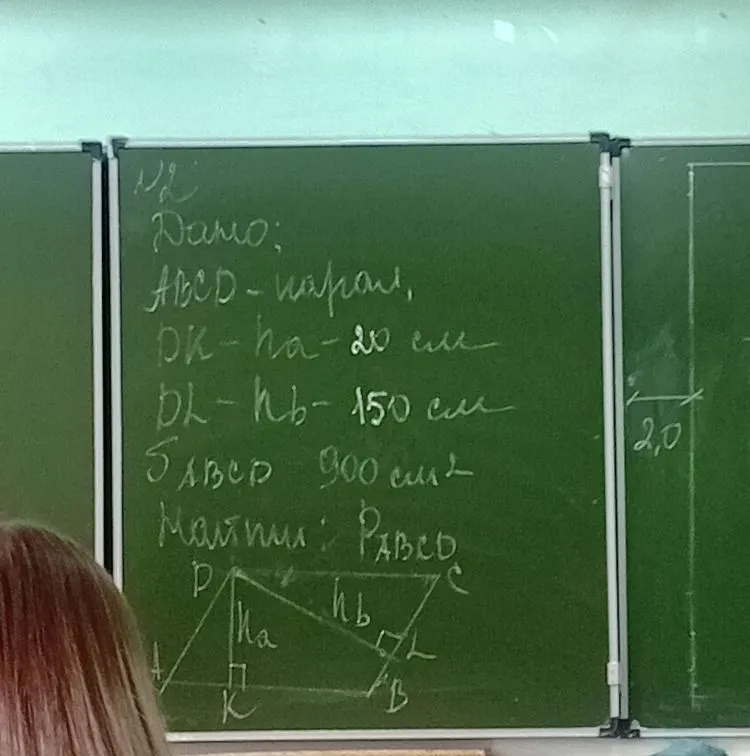 №2
Дано:
ABCD - парал.
DK - ha - 20 см
DL - hb - 150 см
SABCD 900 см2
Найти: PABCD
D
C
hb
ha
L
A
K
B
2,0